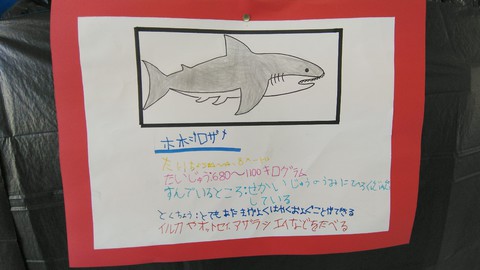 ホホジロザメ
たいちょう
たいじゅう:680〜1100キログラム
すんでいるところ:せかいじゅうのうみにひろくぶんぷ
している
とくちょう:とてもあたまがよくはやくおよぐことができる
イルカやオットセイ、アザラシ、エイなどをたべる